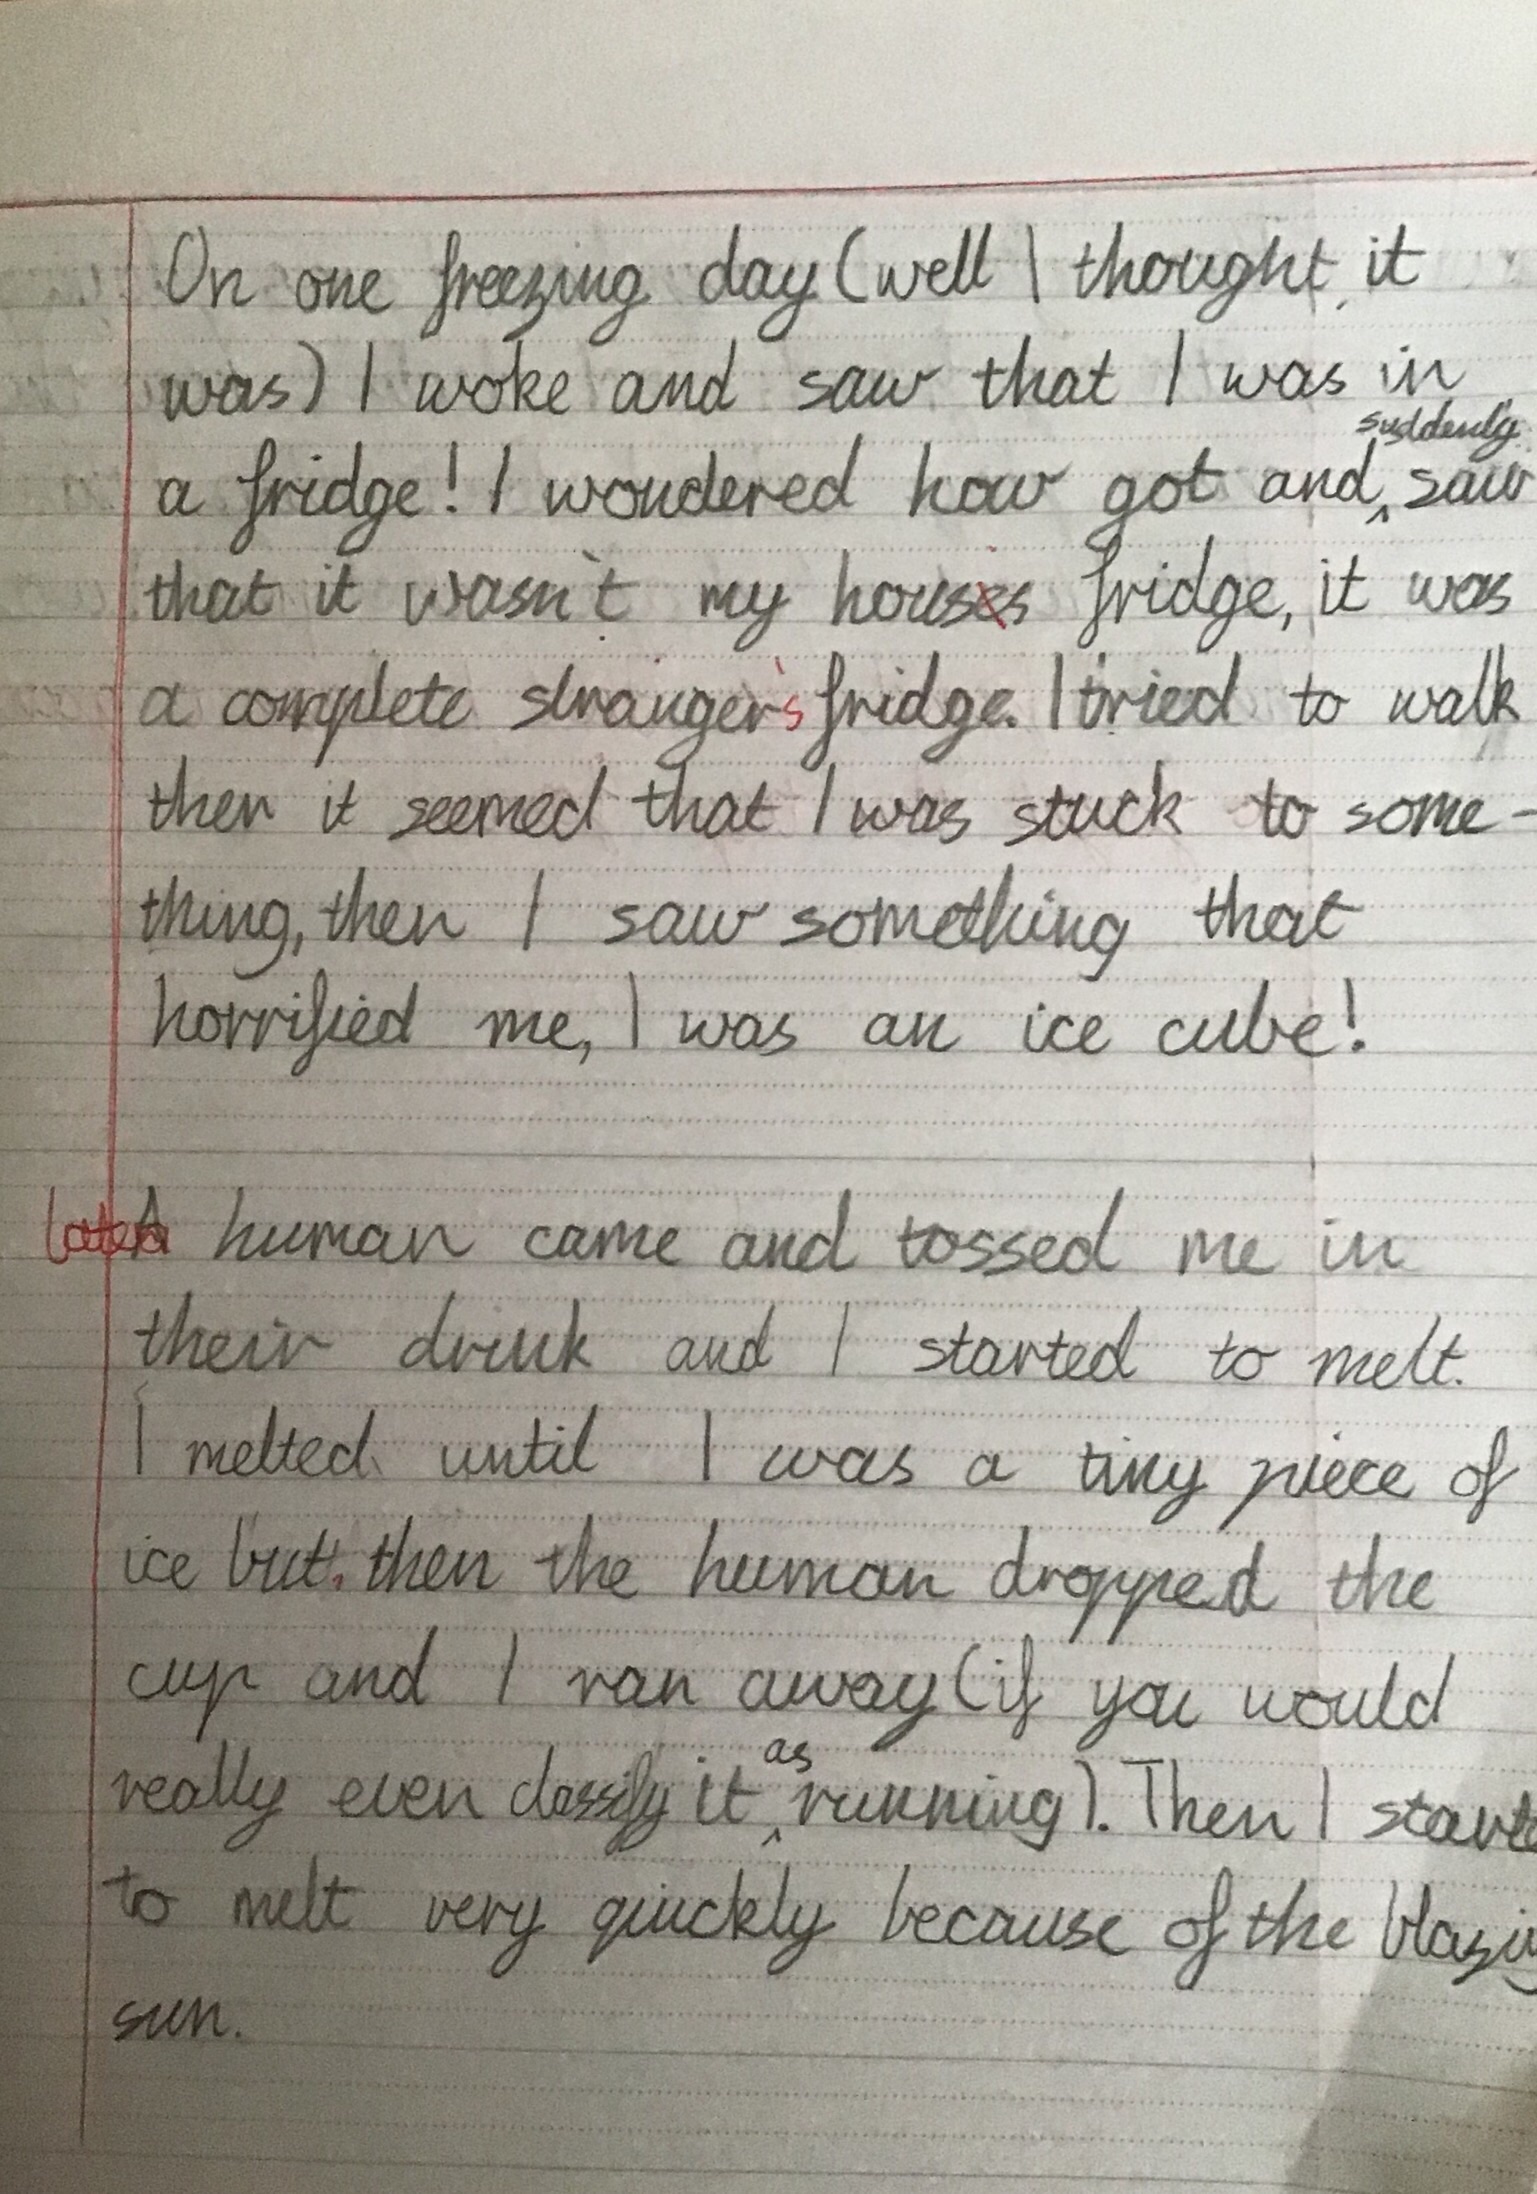 On one freezing day (well I thought it
was) I woke and saw that I was in
a fridge! I wondered how got and suddenly saw
that it wasn't my houses fridge, it was
a complete stranger's fridge. I tried to walk
then it seemed that I was stuck to some-
thing, then I saw something that
horrified me, I was an ice cube!
later A human came and tossed me in
their drink and I started to melt.
I melted until I was a tiny piece of
ice but, then the human dropped the
cup and I ran away (if you would
really even classify it as running). Then I starte
to melt very quickly because of the blazing
sun.